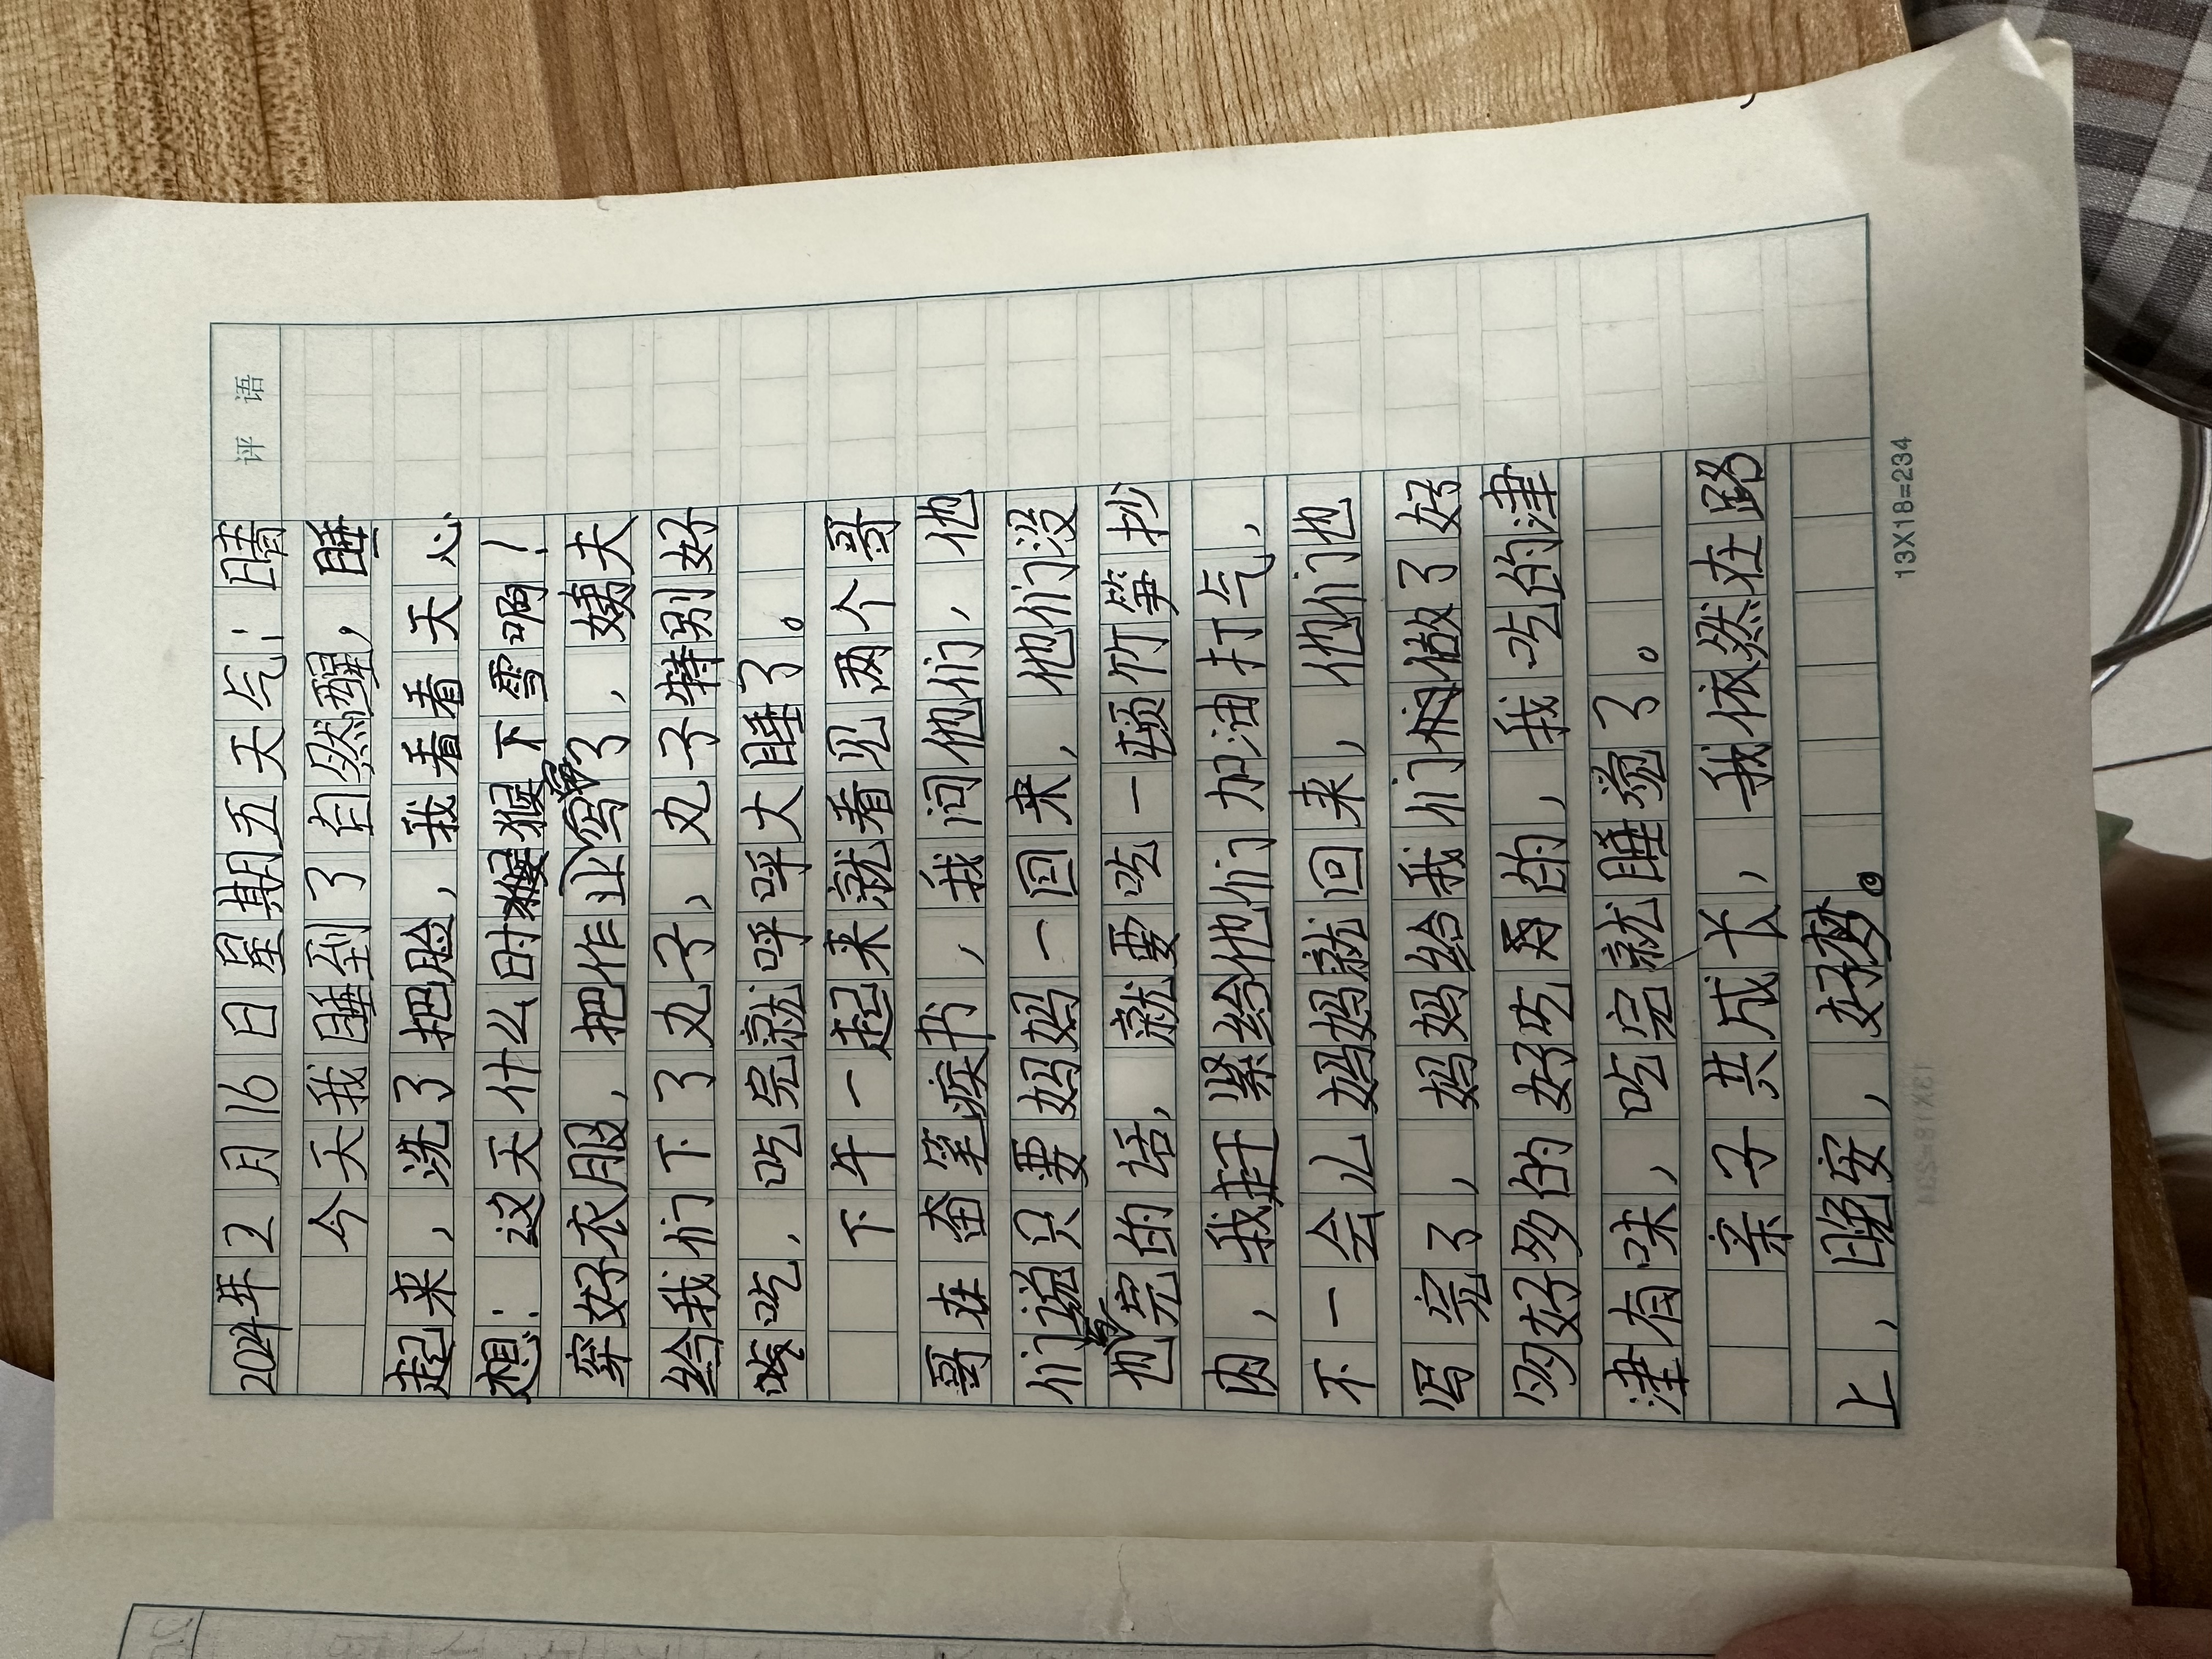 2024年2月16日星期五天气：晴
评 语
今天我睡到了自然醒，睡
起来，洗了把脸，我看看天心
想：这天什么时候下雪啊！
穿好衣服，把作业写了，姨夫
给我们下了丸子，丸子特别好
吃，吃完就呼呼大睡了。
下午一起来就看见两个哥
哥在奋笔疾书，我问他们，他
们说只要妈妈一回来，他们没
完的话，就要吃一顿竹笋抄
肉，我赶紧给他们加油打气，
不一会儿妈妈就回来，他们也
写完了，妈妈给我们做了好
多好多的好吃的，我吃的津
津有味，吃完就睡觉了。
亲子共成长，我依然在路
上，晚安，好梦。
13X18=234